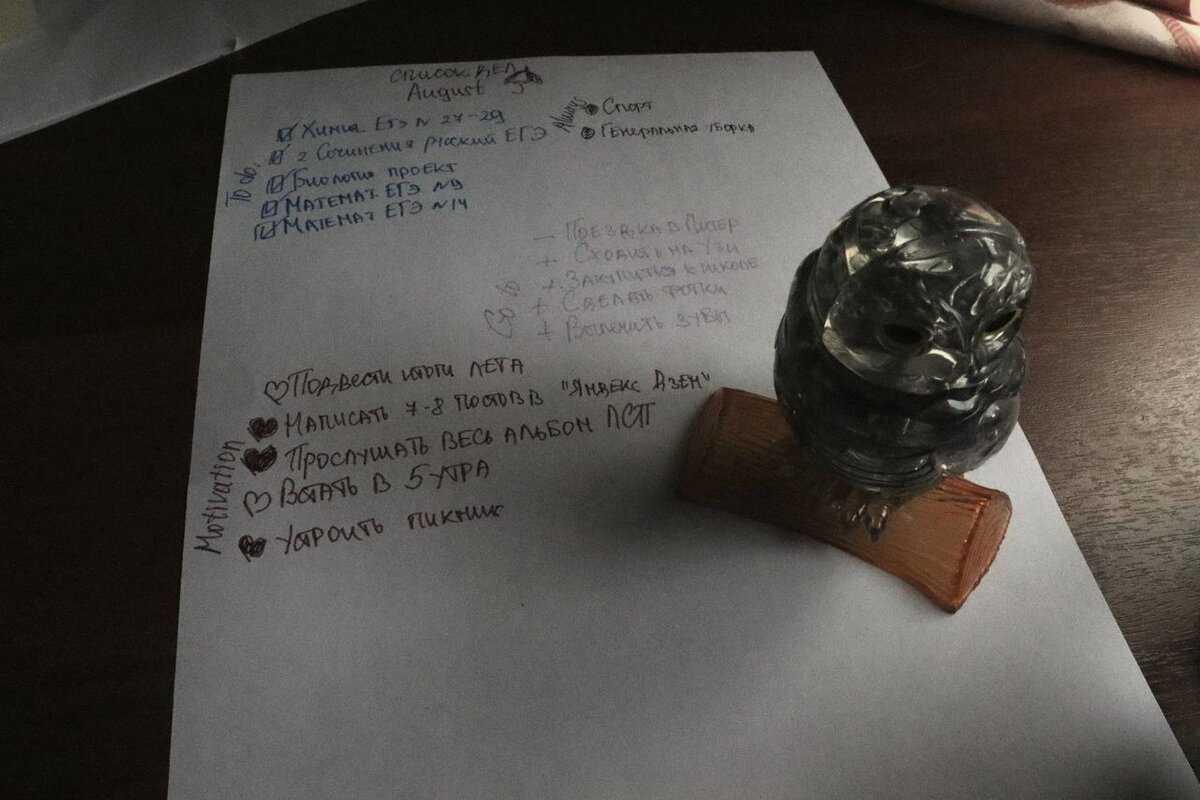 Список дел
August
To do:
Химия ЕГЭ № 27-29
2 Сочинения русский ЕГЭ
Биология проект
Математ. ЕГЭ №9
Математ ЕГЭ №14
Always
Спорт
Генеральная уборка
— Поездка в Питер
+ Сходить на узи
+ Закупиться к школе
+ Сделать фотки
+ Вылечить зубы
Motivation
Подвести итоги лета
Написать 7-8 постов в "Яндекс Дзен"
Прослушать весь альбом ЛСП
Встать в 5 утра
Устроить пикник